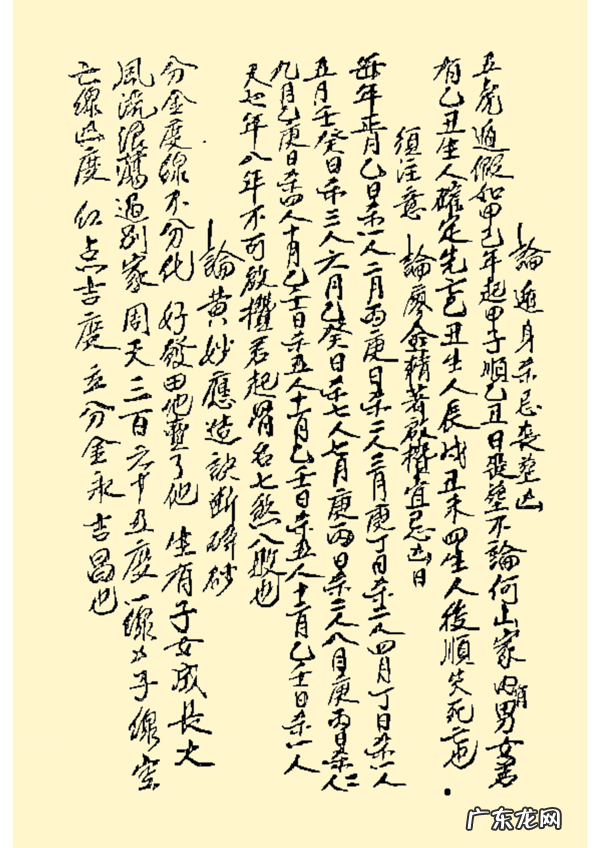 論遁身杀忌丧塟凶
五虎遁假如甲己年起甲子順乙丑日發塟不論何山家內有男女若
有乙丑生人確定先亡丑生人辰戌丑未四生人後順失死亡也
須注意 論廖金精著啟攢宜忌凶日
每年正月乙日杀一人二月丙庚日杀二人三月庚丁日杀二人四月丁日杀一人
五月壬癸日杀三人六月乙癸日杀七人七月庚丙日杀二人八月庚丙日杀二人
九月乙庚日杀四人十月乙壬日杀五人十一月乙壬日杀五人十二月乙壬日杀一人
又七年八年不可啟攢若起骨名七煞八敗也
論黃妙應造訣斷磚砂
分金度線不分他 好發田地賣了他 生有子女成長大
風流浪蕩過別家 周天三百六十五度 一線 子線空
亡線 度 紅点吉度 分金永吉昌也
广东龙网